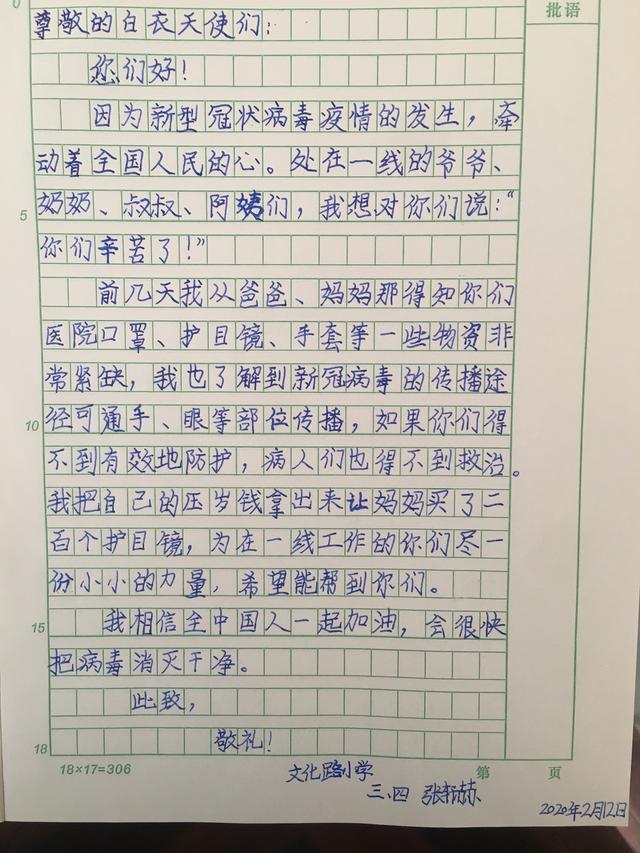 0
批语
尊敬的白衣天使们:
您们好!
因为新型冠状病毒疫情的发生,牵
动着全国人民的心。处在一线的爷爷、
5
奶奶、叔叔、阿姨们,我想对你们说:“
你们辛苦了!”
前几天我从爸爸、妈妈那得知你们
医院口罩、护目镜、手套等一些物资非
常紧缺,我也了解到新冠病毒的传播途
10
径可通手、眼等部位传播,如果你们得
不到有效地防护,病人们也得不到救治。
我把自己的压岁钱拿出来让妈妈买了二
百个护目镜,为在一线工作的你们尽一
份小小的力量,希望能帮到你们。
15
我相信全中国人一起加油,会很快
把病毒消灭干净。
此致,
18
敬礼!
18×17=306
文化路小学
第 页
三.四 张
2020年2月12日